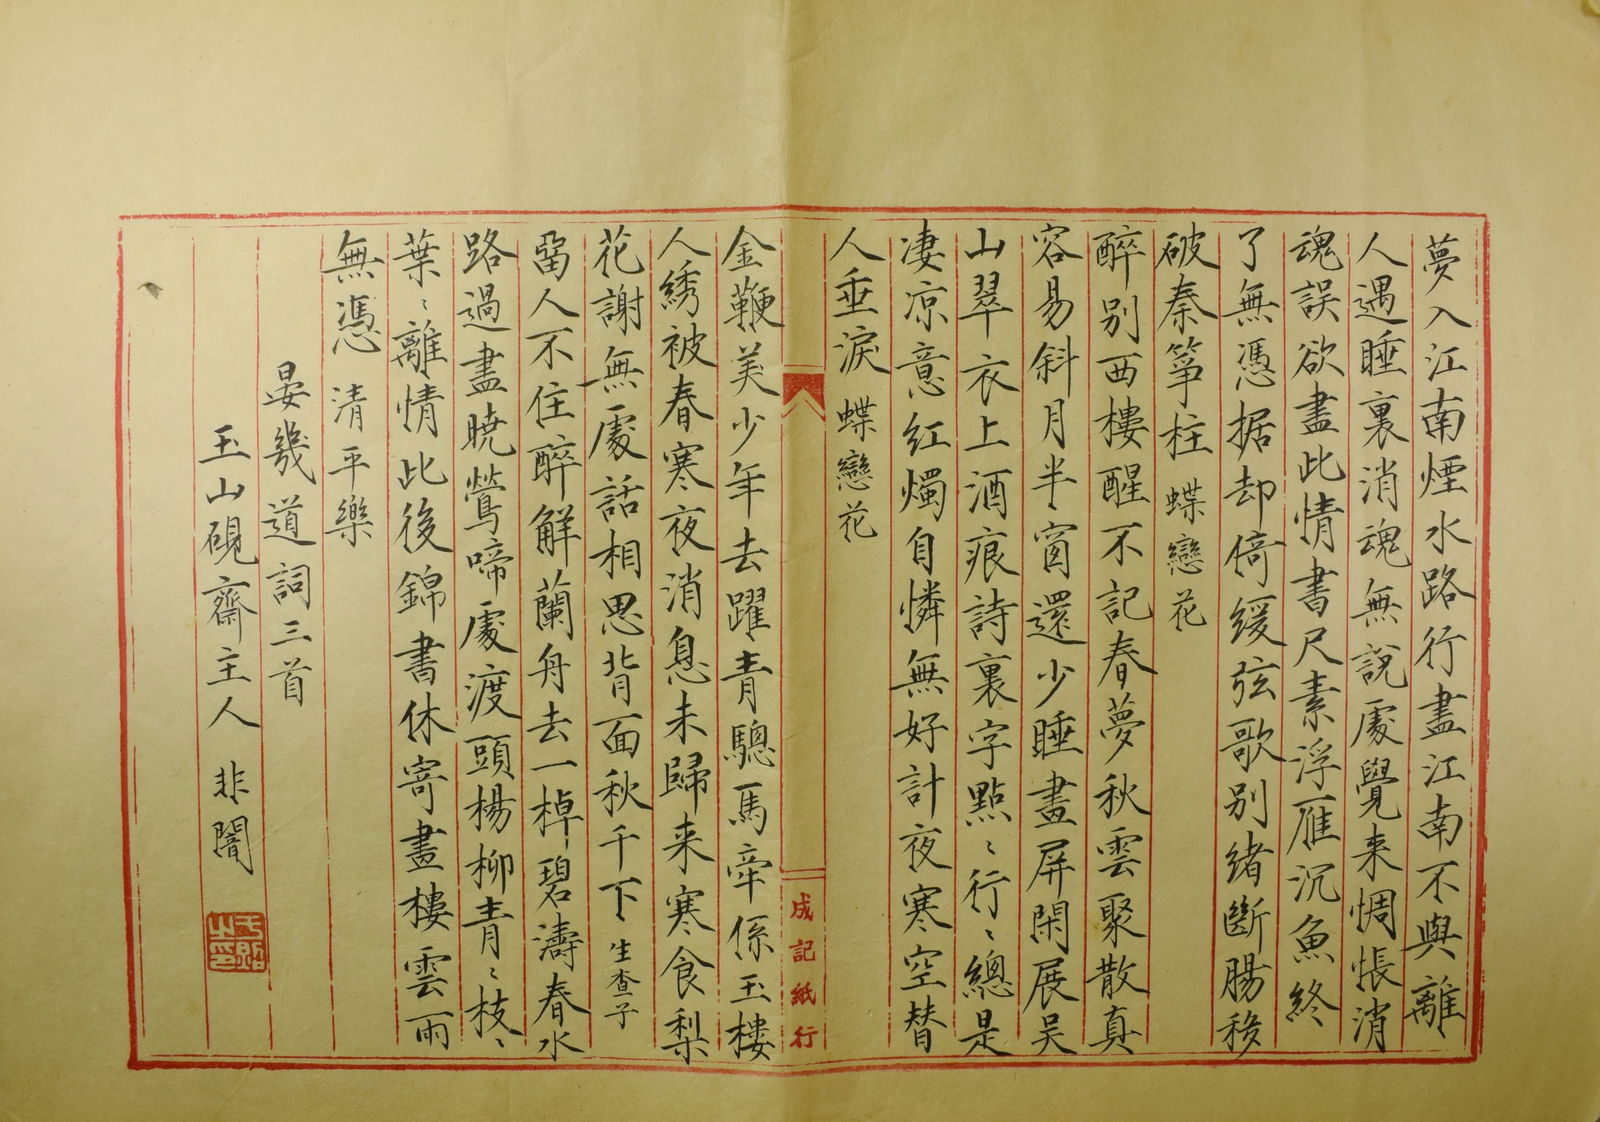 夢入江南煙水路行盡江南不與離
人遇睡裏消魂無說處覺来惆悵消
魂誤欲盡此情書尺素浮雁沉魚終
了無憑据却倚緩弦歌别緒斷腸移
破秦筝柱 蝶戀花
醉别西樓醒不記春夢秋雲聚散真
容易斜月半〻窗還少睡畫屏閑展吴
山翠衣上酒痕詩裏字點〻行〻總是
凄凉意红燭自憐無好計夜寒空替
人垂淚 蝶戀花
金鞭美少年去躍青驄馬牵係玉樓
人绣被春寒夜消息未歸来寒食梨
花謝無處話相思背面秋千下 生查子
畱人不住醉解蘭舟去一棹碧濤春水
路過盡曉鶯啼處渡頭楊柳青〻枝〻
葉〻離情此後錦書休寄畫樓雲雨
無憑 清平樂
晏幾道詞三首
玉山硯齋主人 非闇
成記紙行